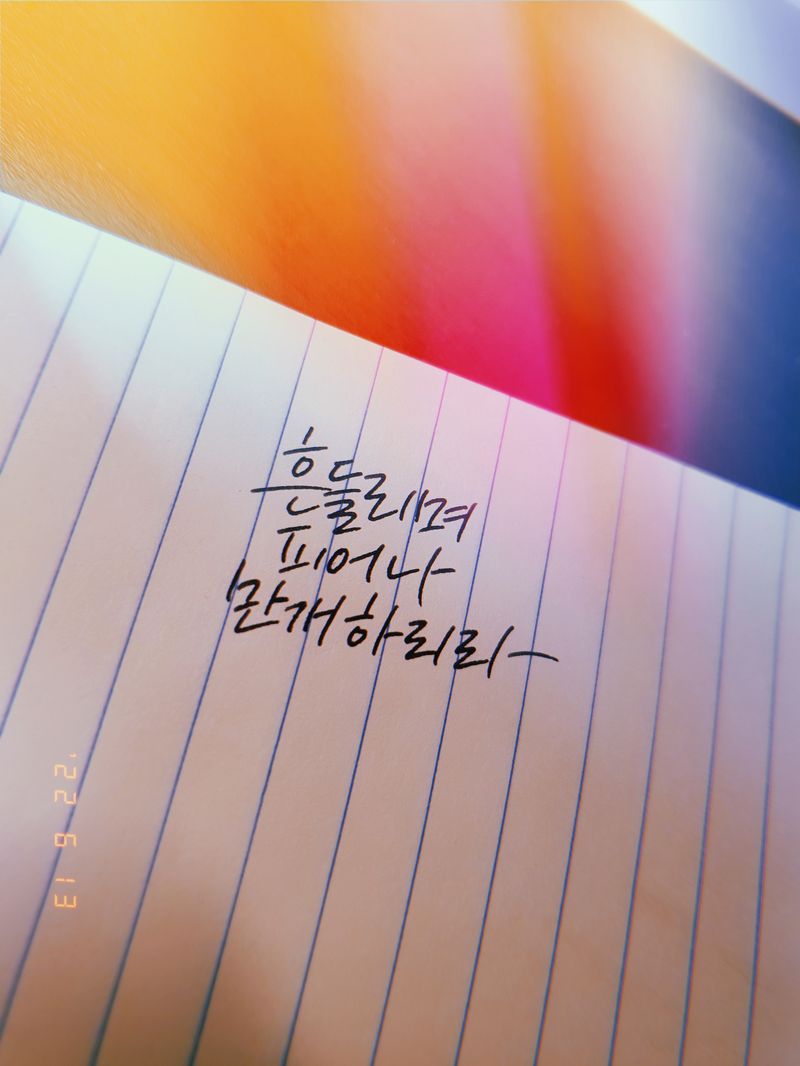 흔들려
피어나
만개하리라
'22 6 13